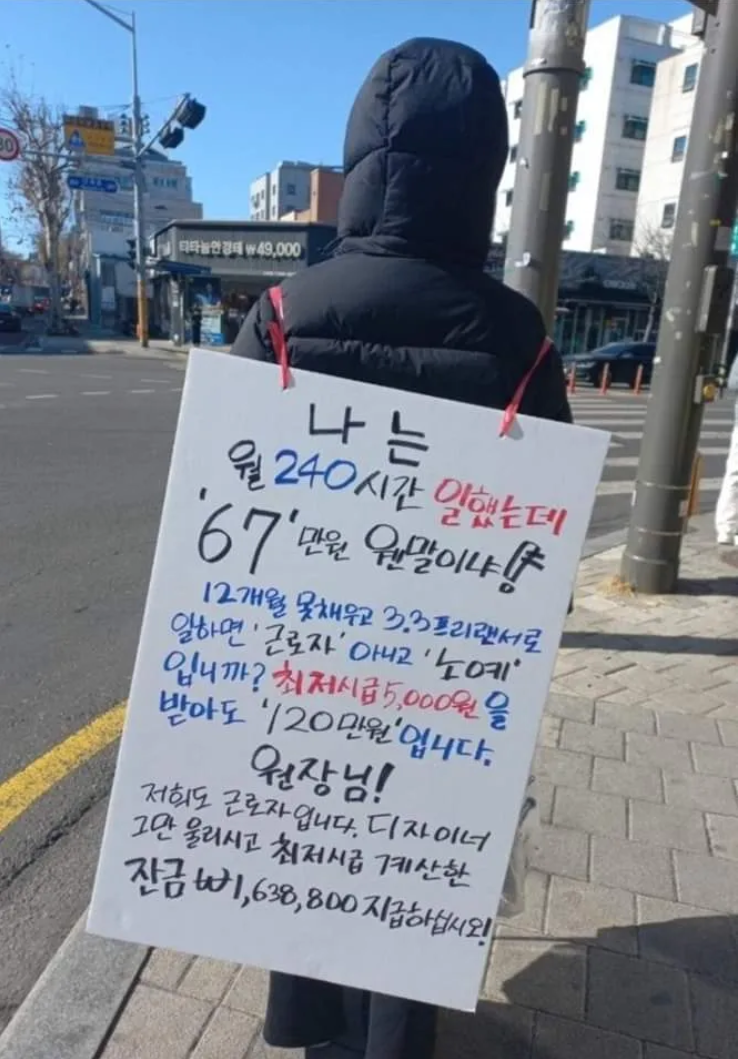 티타늄안경테 ₩49,000
나는
월 240시간 일했는데
'67'만원 웬말이냐!
12개월 못채우고 3.3프리랜서로
일하면 '근로자' 아니고 '노예'
입니까? 최저시급5,000원을
받아도 '120만원'입니다.
원장님!
저희도 근로자입니다. 디자이너
그만 울리시고 최저시급 계산한
잔금 ₩1,638,800 지급하십시오!